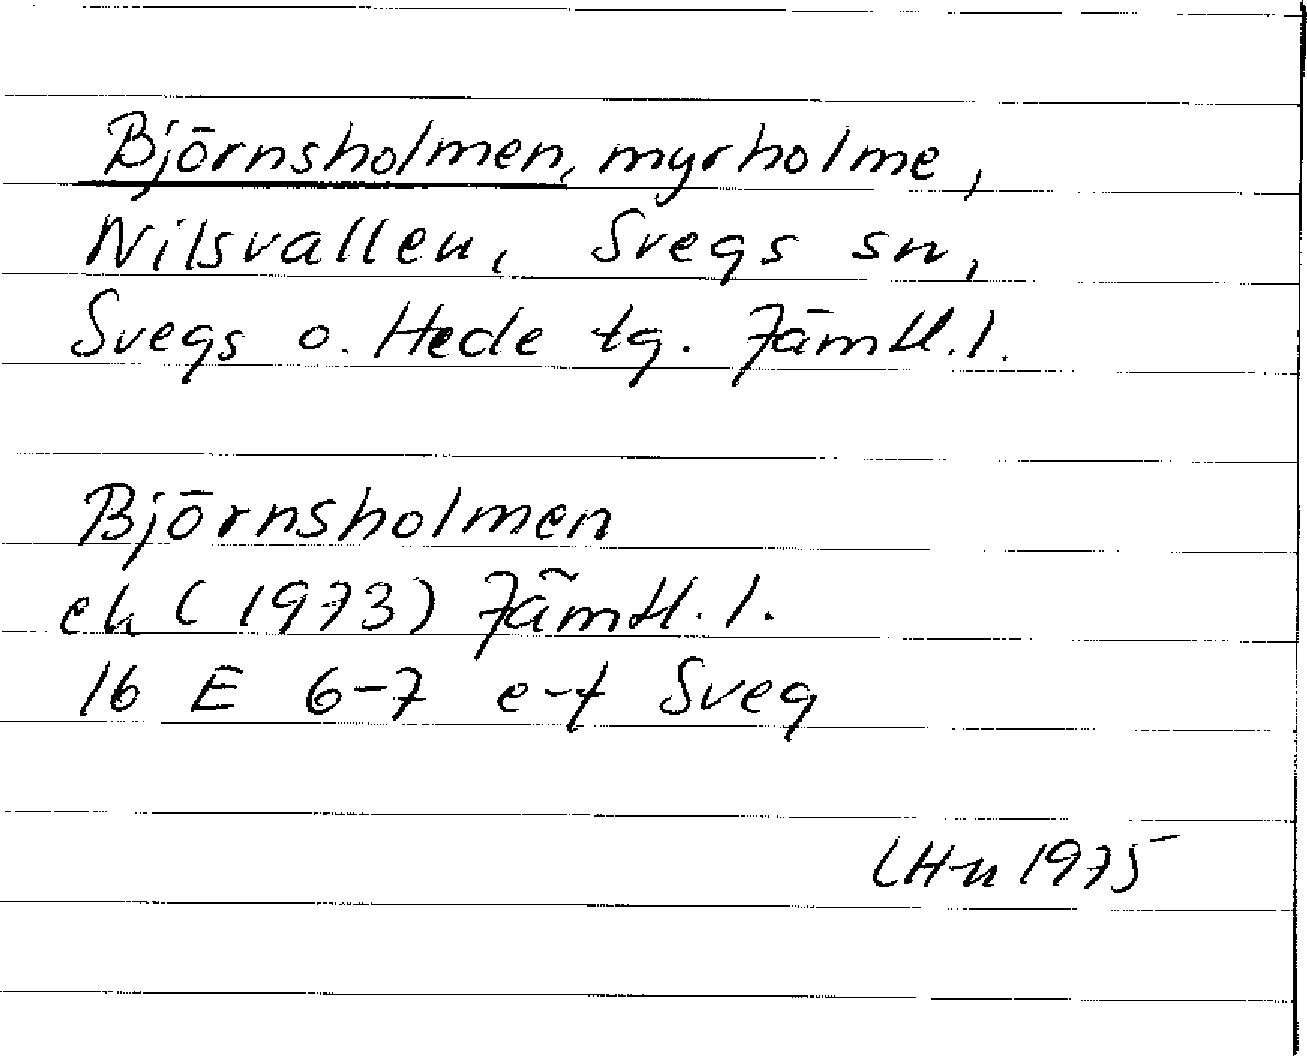 Björnsholmen, myrholme,
Nilsvallen, Svegs sn,
Svegs o. Hede tg. Jämtl.l.
Björnsholmen
ek (1973) Jämtl.l.
16 E 6-7 e-f Sveg
LH-n 1975